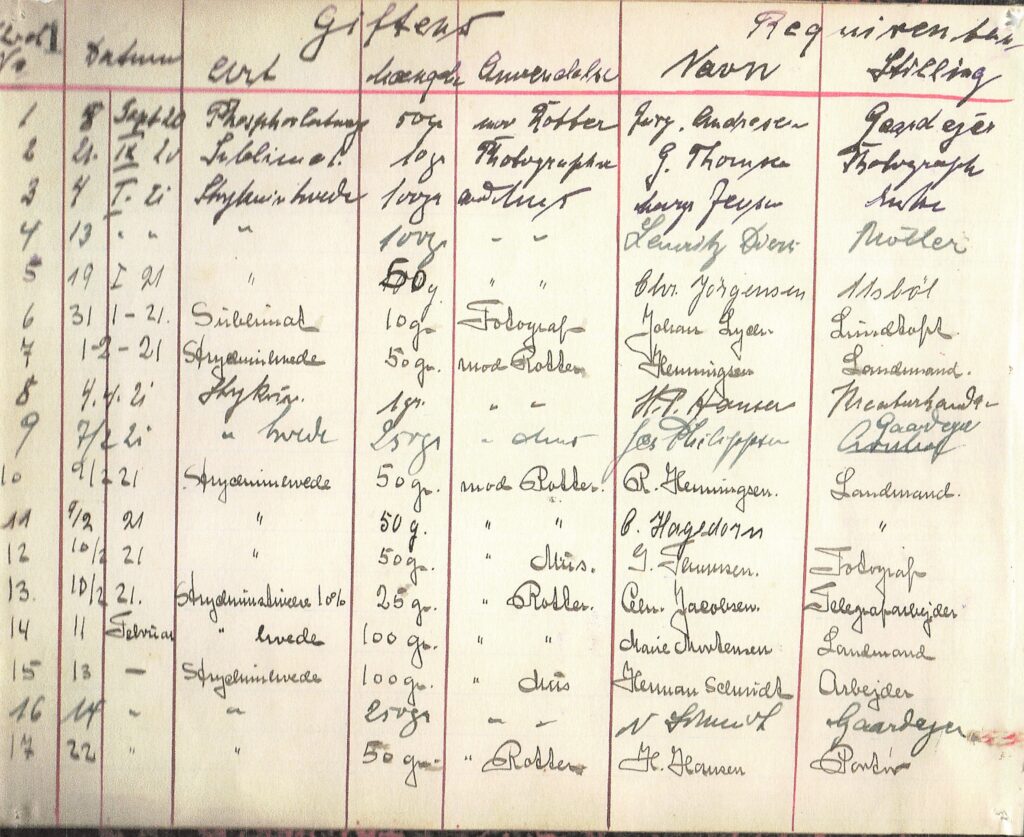 Giftens Requirentens
Datum Art Mængde Anvendelse Navn Stilling
1 8 Sept 20 50gr mod Rotter Jørg. Andresen Gaardejer
2 21. IX 20 Sublimat. 10gr Photographie G. Thomsen Photograph
3 4 I. 21 Strykninhvede 100gr mod Mus Jensen
4 13 " " " 100gr " "
5 19 I 21 " 50 g. " " Chr. Jörgensen Ulsböl
6 31 1-21. Sublimat 10gr. Fotograf Johan Lundtoft
7 1-2-21 Strychninhvede 50gr. mod Rotter Henningsen Landmand.
8 4.4.21 Stryknin. 1gr. " " H.P. Hansen
9 7/2 21 " hvede 250gr " Mus Jes Philippsen Gaardejer
10 9/2 21 Strychninhvede 50gr. mod Rotter. P. Henningsen. Landmand.
11 9/2 21 " 50g. " " C. Hagedorn "
12 10/2 21 " 50gr. " Mus. G. Thomsen. Fotograf
13. 10/2 21. 10% 25gr. " Rotter. Jacobsen. Telegrafarbejder
14 11 Februar " hvede 100gr. " " Marie Mortensen Landmand
15 13 — Strychninhvede 100gr. " Mus Herman Schmidt Arbejder
16 14 " " 250gr " " N Schmidt Gaardejer
17 22 " " 50gr. " Rotter H. Hansen Portör